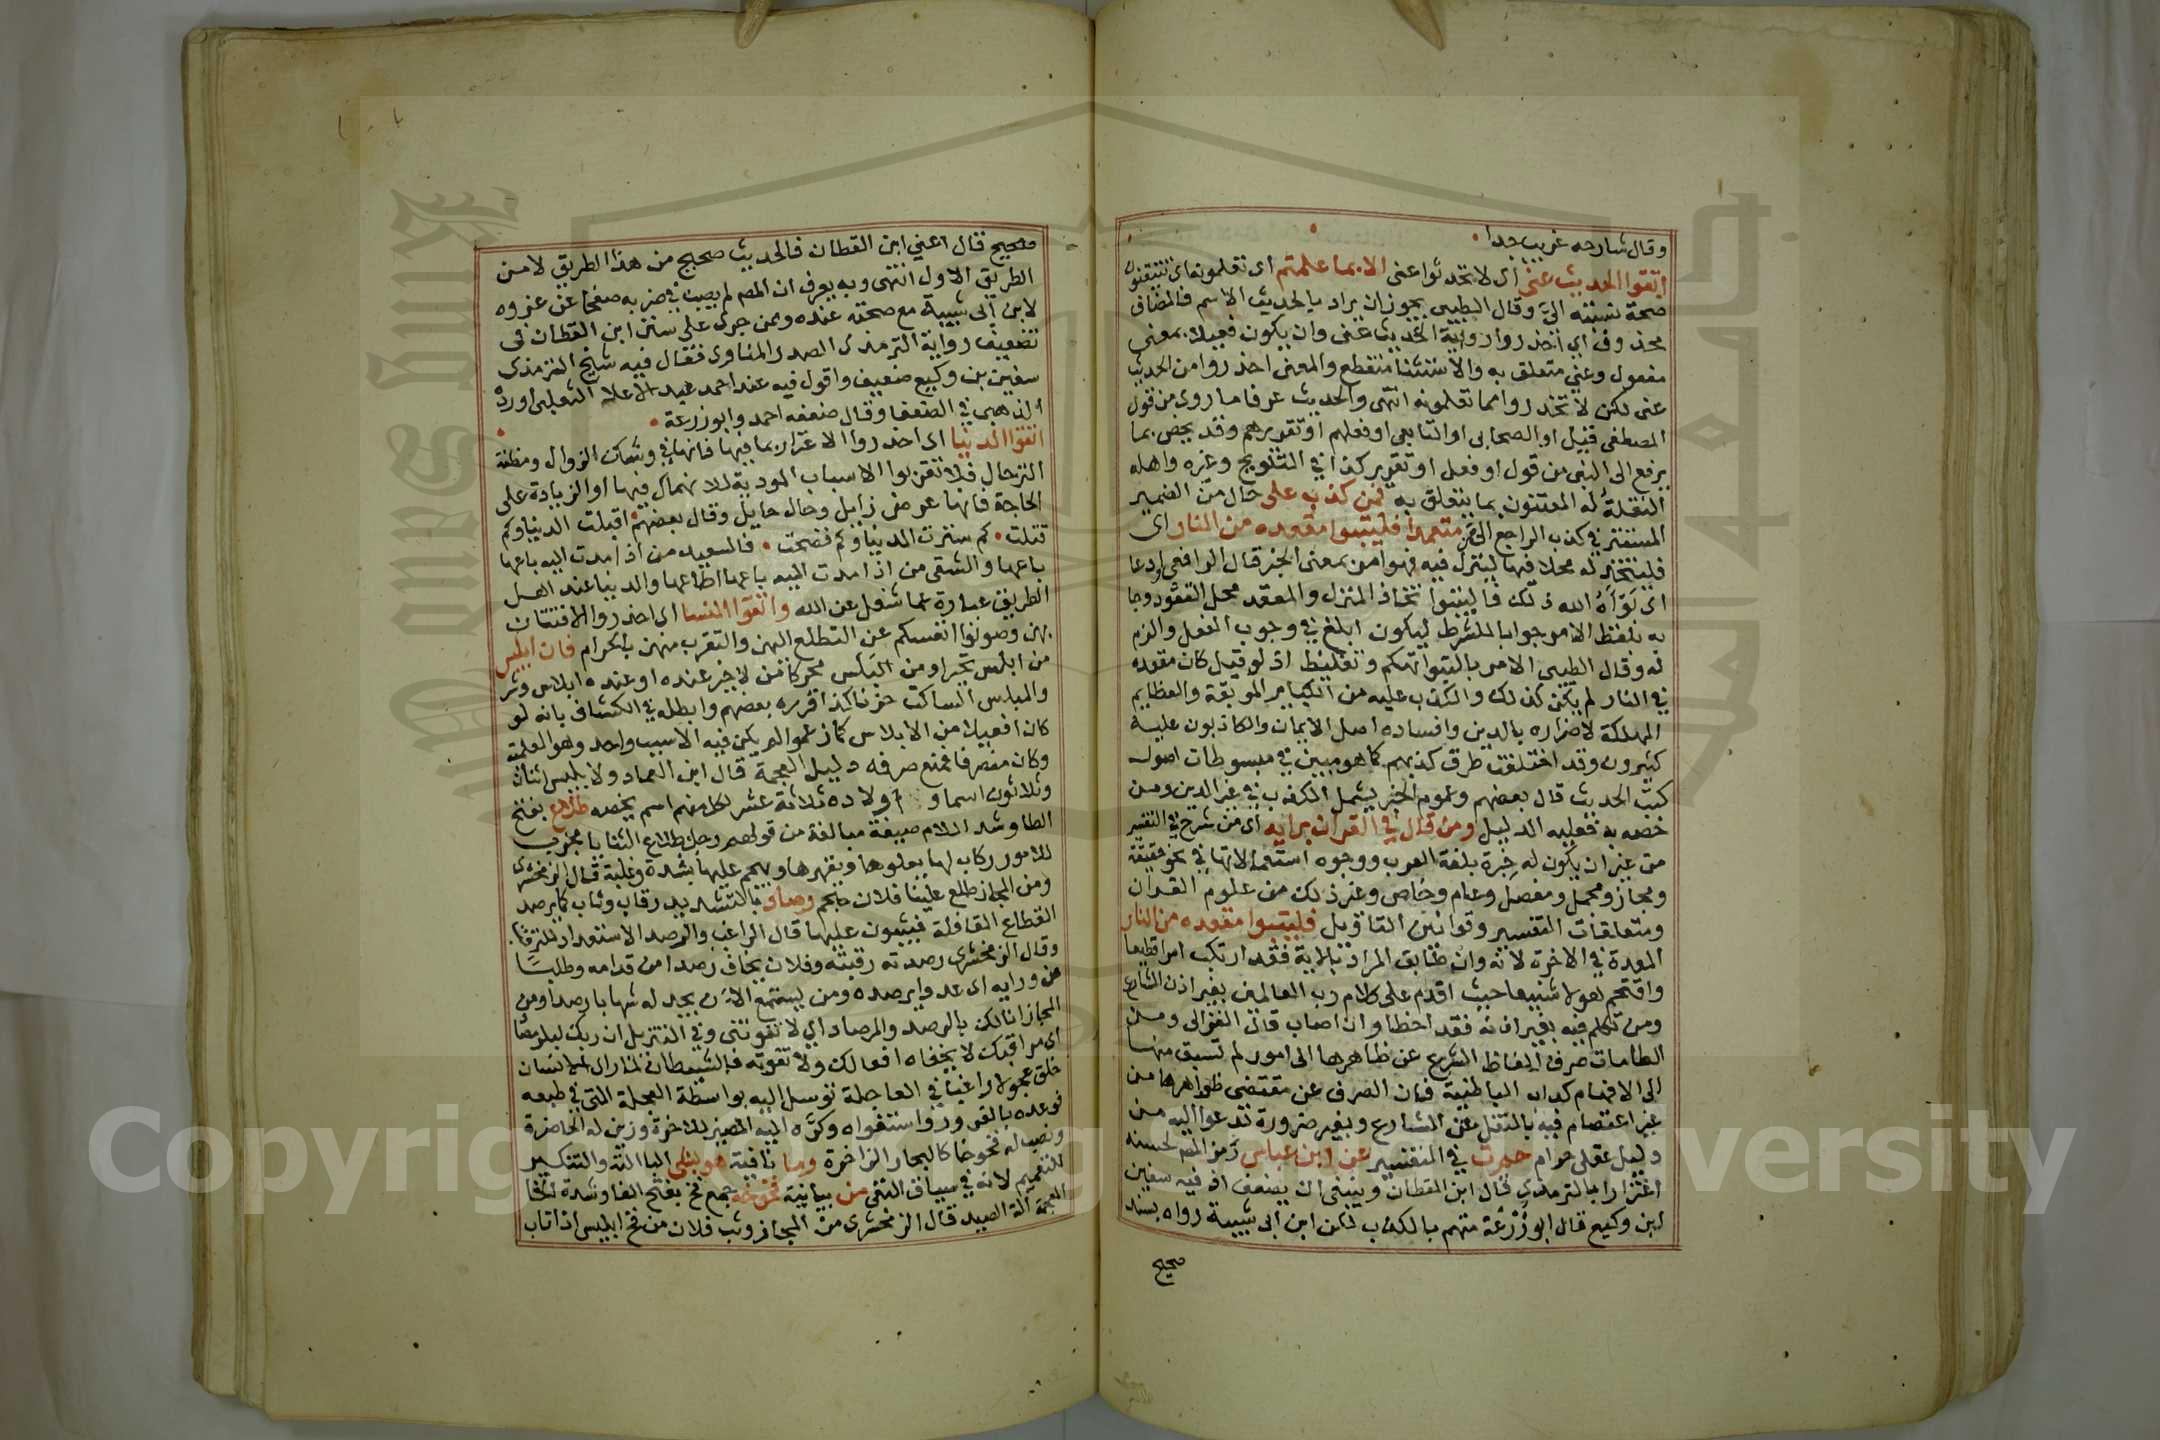 وقال شارحه غريب جدا
اتقوا الحديث عني اى لا تحدثوا عنى الا بما علمتم اى تعلمونه اى تتيقنون
صحة نسبته اليّ وقال الطيبي يجوز ان يراد بالحديث الاسم فالمضاف
محذوف اي احذروا رواية الحديث عنى وان يكون فعيلا بمعنى
مفعول وعني متعلق به والاستثنا منقطع والمعنى احذروا من الحديث
عنى لكن لا تحذروا مما تعلمونه انتهى والحديث عرفا ما روى من قول
المصطفى قيل او الصحابى او التابعي او فعلهم او تقريرهم وقد يخص بما
يرفع الى النبى من قول او فعل او تقرير كذا في التلويح وغيره واهله
النقلة له المعتنون بما يتعلق به فمن كذب على حال من الضمير
المستتر في كذب الراجع الى من متعمدا فليتبوا مقعده من النار اى
فليتخذ له محلا فيها لينزل فيه فهو امر بمعنى الخبر قال الرافعى او دعا
اى بَوّأَهُ الله ذلك فالتبوا اتخاذ المنزل والمقعد محل القعود وجا
به بلفظ الامر جوابا للشرط ليكون ابلغ في وجوب الفعل والزم
له وقال الطيبي الامر بالتبوا تهكم وتغليظ اذ لو قيل كان مقعده
في النار لم يكن كذلك والكذب عليه من الكباير الموبقة والعظايم
المهلكة لاضراره بالدين وافساده اصل الايمان والكاذبون عليه
كثيرون وقد اختلفت طرق كذبهم كما هو مبين في مبسوطات اصول
كتب الحديث قال بعضهم وعموم الخبر يشمل الكذب في غير الدين ومن
خصه به فعليه الدليل ومن قال في القران برايه اى من شرع في التفسير
من غير ان يكون له خبرة بلغة العرب ووجوه استعمالاتها في نحو حقيقة
ومجاز ومجمل ومفصل وعام وخاص وغير ذلك من علوم القران
ومتعلقات التفسير وقوانين التاويل فليتبوا مقعده من النار
المعدة في الاخرة لانه وان طابق المراد بالاية فقد ارتكب امرا فظيعا
واقتحم هولا شنيعا حيث اقدم على كلام رب العالمين بغير اذن الشارع
ومن تكلم فيه بغير اذنه فقد اخطا وان اصاب قال الغزالى ومن
الطامات صرف الفاظ الشرع عن ظاهرها الى امور لم تسبق منها
الى الافهام كداب الباطنية فان الصرف عن مقتضى ظواهرها من
غير اعتصام فيه بالنقل عن الشارع وبغير ضرورة تدعوا اليه من
دليل عقلى حرام حم ت في التفسير عن ابن عباس رمز المصـ لحسنه
اغترارا بالترمذي قال ابن القطان وينبغى ان يضعف اذ فيه سفين
ابن وكيع قال ابو زُرْعَة متهم بالكذب لكن ابن ابى شيبة رواه بسند
صحيح
صحيح قال اعني ابن القطان فالحديث صحيح من هذا الطريق لا من
الطريق الاول انتهى وبه يعرف ان المصـ لم يصب في ضربه صفحا عن عزوه
لابن ابى شيبة مع صحته عنده وممن جرى على سنن ابن القطان فى
تضعيف رواية الترمذى الصدر المناوى فقال فيه شيخ الترمذى
سفين بن وكيع ضعيف واقول فيه عند احمد عبد الاعلا الثعلبى اورده
الذهبي في الضعفا وقال ضعفه احمد وابو زرعة
اتقوا الدنيا اى احذروا الاغترار بما فيها فانها في وشك الزوال ومظنة
الترحال فلا تقربوا الاسباب المودية للانهماك فيها او الزيادة على
الحاجة فانها عرض زايل وحال حايل وقال بعضهم اقبلت الدنيا وكم
قتلت كم سترت الدنيا وكم فضحت فالسعيد من اذا مدت اليه باعها
باعها والشقى من اذا مدت اليه باعها اطاعها والدنيا عند اهل
الطريق عبارة عما شغل عن الله واتقوا النسا اى احذروا الافتتان
بهن وصونوا انفسكم عن التطلع اليهن والتقرب منهن بالحرام فان ابليس
من ابلس تحير او من البَلَس محركا من لا خير عنده او عنده ابلاس وشر
والمبلس الساكت حزنا كذا قرره بعضهم وابطله في الكشاف بانه لو
كان افعيلا من الابلاس كما زعموا لم يكن فيه الا سبب واحد وهو العلمية
وكان منصرفا فمنع صرفه دليل العجمة قال ابن العماد ولابليس اثنان
وثلاثون اسما و اولاده ثلاثة عشر لكل منهم اسم يخصه طلاع بفتح
الطا وشد اللام صيغة مبالغة من قولهم رجل طلاع الثنايا مجرب
للامور ركاب لها يعلوها ويقهرها ويهجم عليها بشدة وغلبة قال الزمخشرى
ومن المجاز طلع علينا فلان هجم وصاد بالتشديد رقاب وثاب كما يرصد
القطاع القافلة فيثبون عليها قال الراغب والرصد الاستعداد للترقب
وقال الزمخشرى رصدته رقبته وفلان يخاف رصدا من قدامه وطلبا
من ورايه اى عدوا يرصده ومن يستمع الآن يجد له شهابا رصدا ومن
المجاز انا لك بالرصد والمرصاد اي لا تفوتنى وفي التنزيل ان ربك لبالمرصاد
اى مراقبك لا يخفاه افعالك ولا تفوته فالشيطان لما راى الانسان
خلق عجولا راغبا في العاجلة توسل اليه بواسطة العجلة التى في طبعه
فوعده بالغرور واستغواه وكرّه اليه المصير للاخرة وزين له الحاضرة
ونصب له فخوخا كالبحار الزاخرة وما نافية هو بشى البا التنوين والتنكير
للتعميم لانه في سياق النفى من بيانية فخوخه جمع فخ بفتح الفا وشدة الخا
المعجمة آلة الصيد قال الزمخشرى من المجاز وثب فلان من فخ ابليس اذا تاب
Copyright © King Saud University